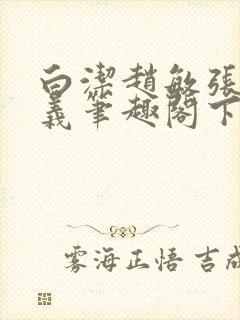 白潔趙敏張
義筆趣閣下
雾海正悟 吉成